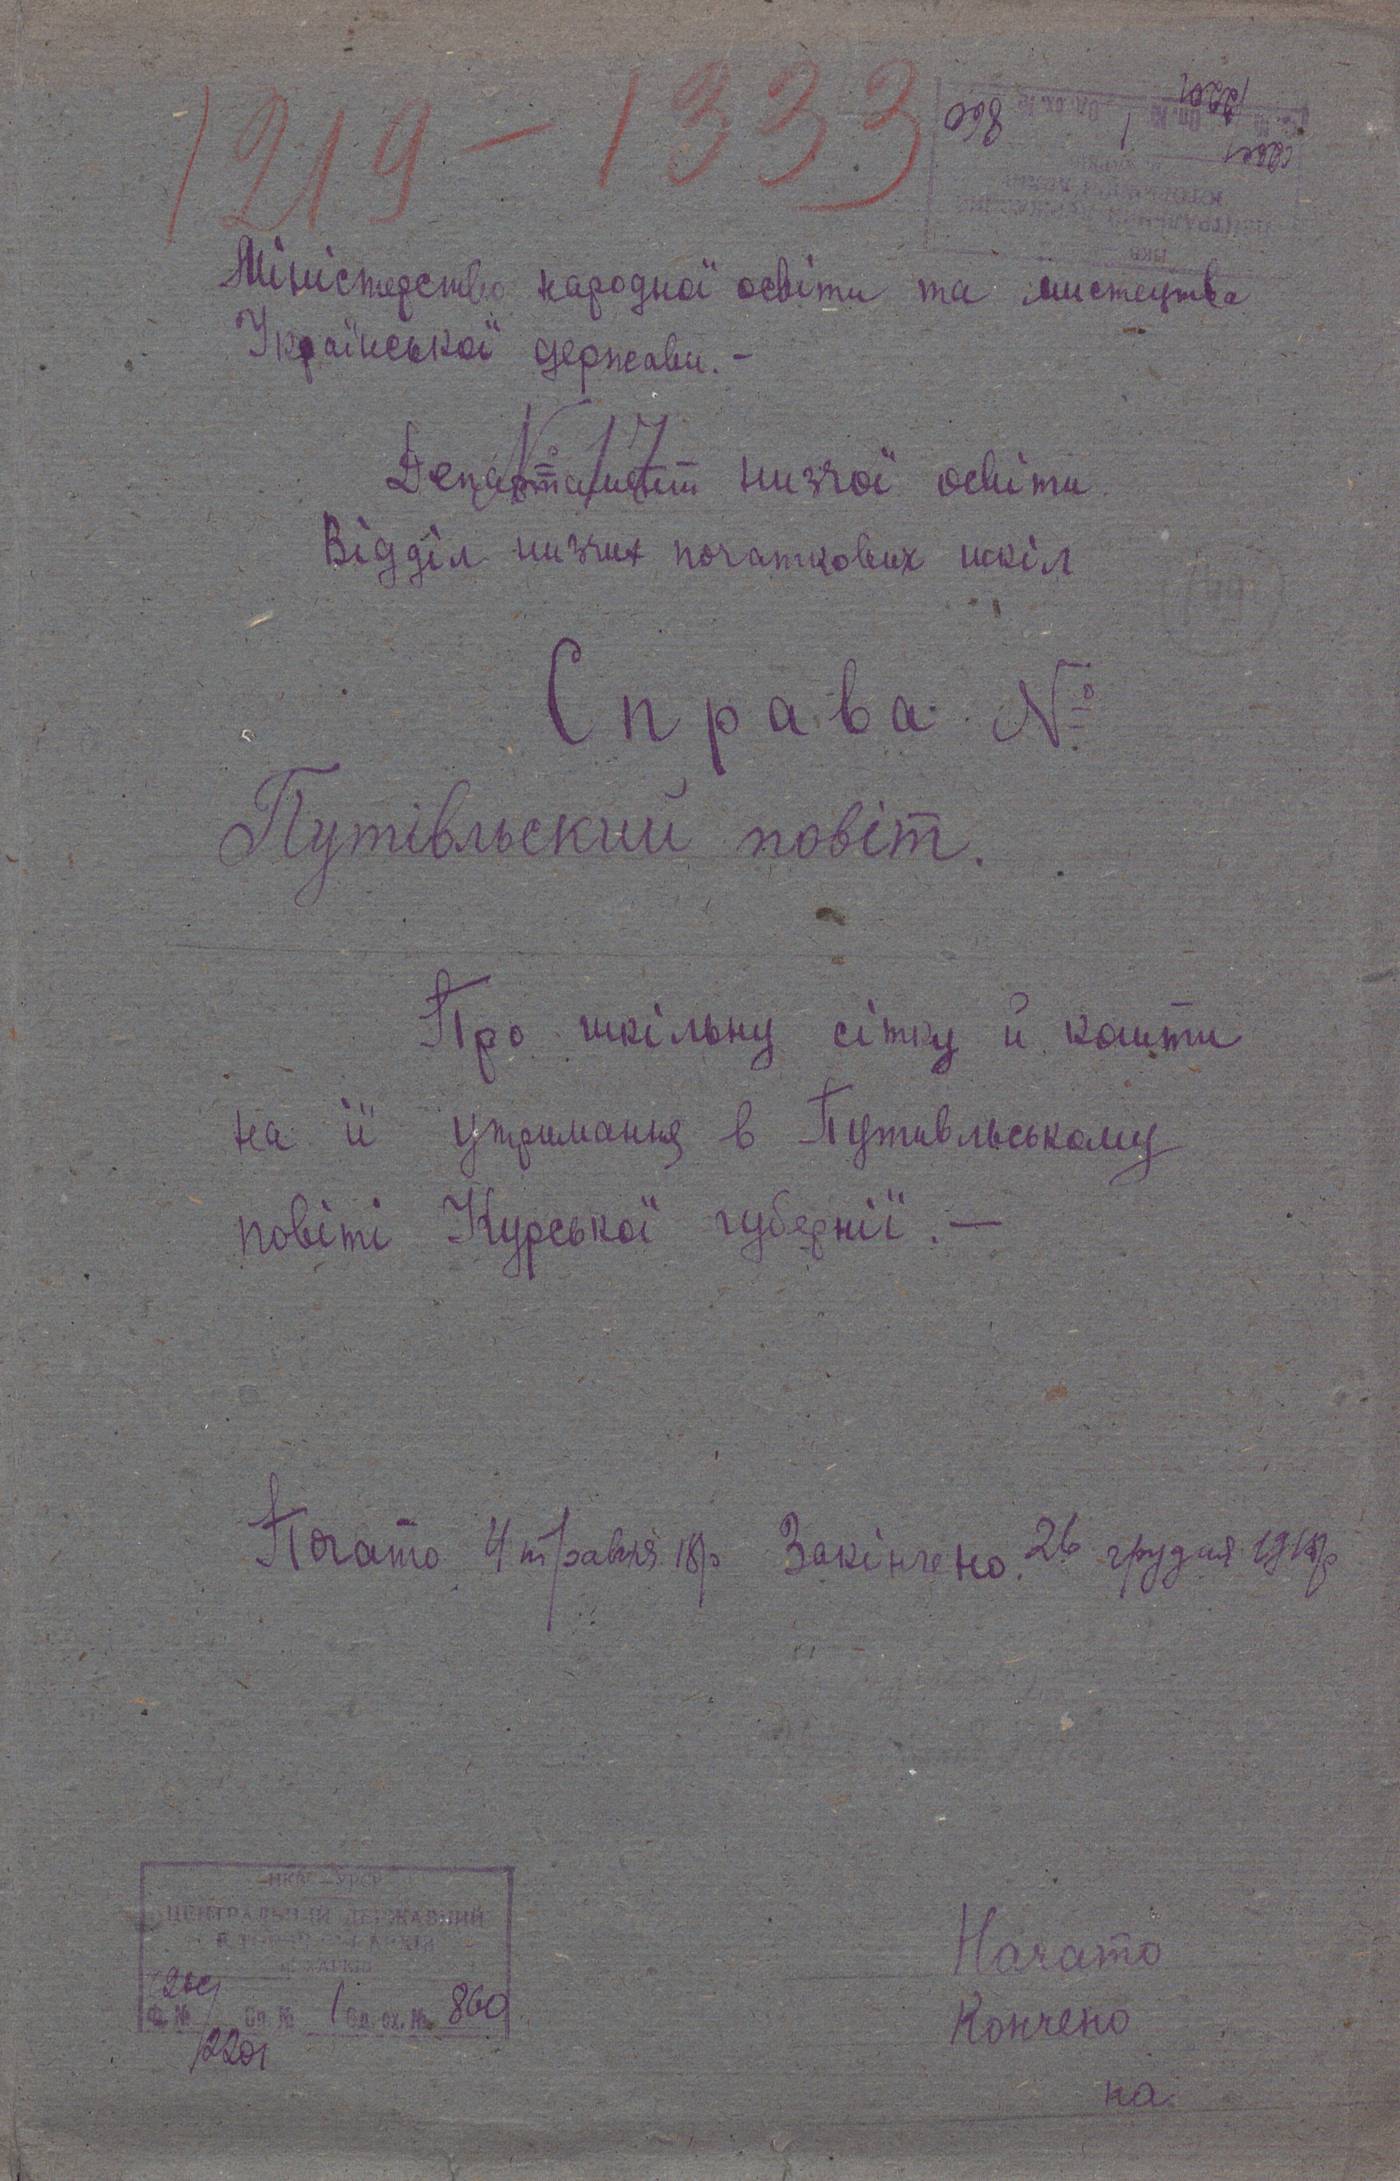 1219 – 1333
Міністерство народної освіти та мистецтва
Української держави. –
№ 17
Департамент низчої освіти
Відділ низчих початкових шкіл
Справа №
Путівльский повіт.
Про шкільну сітку й кошти
на її утримання в Путивльському
повіті Курської губернії. —
Почато 4 травня 18 р Закінчено. 26 грудня 1918 р
НКВС УРСР
ЦЕНТРАЛЬНИЙ ДЕРЖАВНИЙ
АРХІВ
м. ХАРКІВ
Ф. № 2201 Оп. № 1 Од. ох. № 860
Начато
Кончено
на